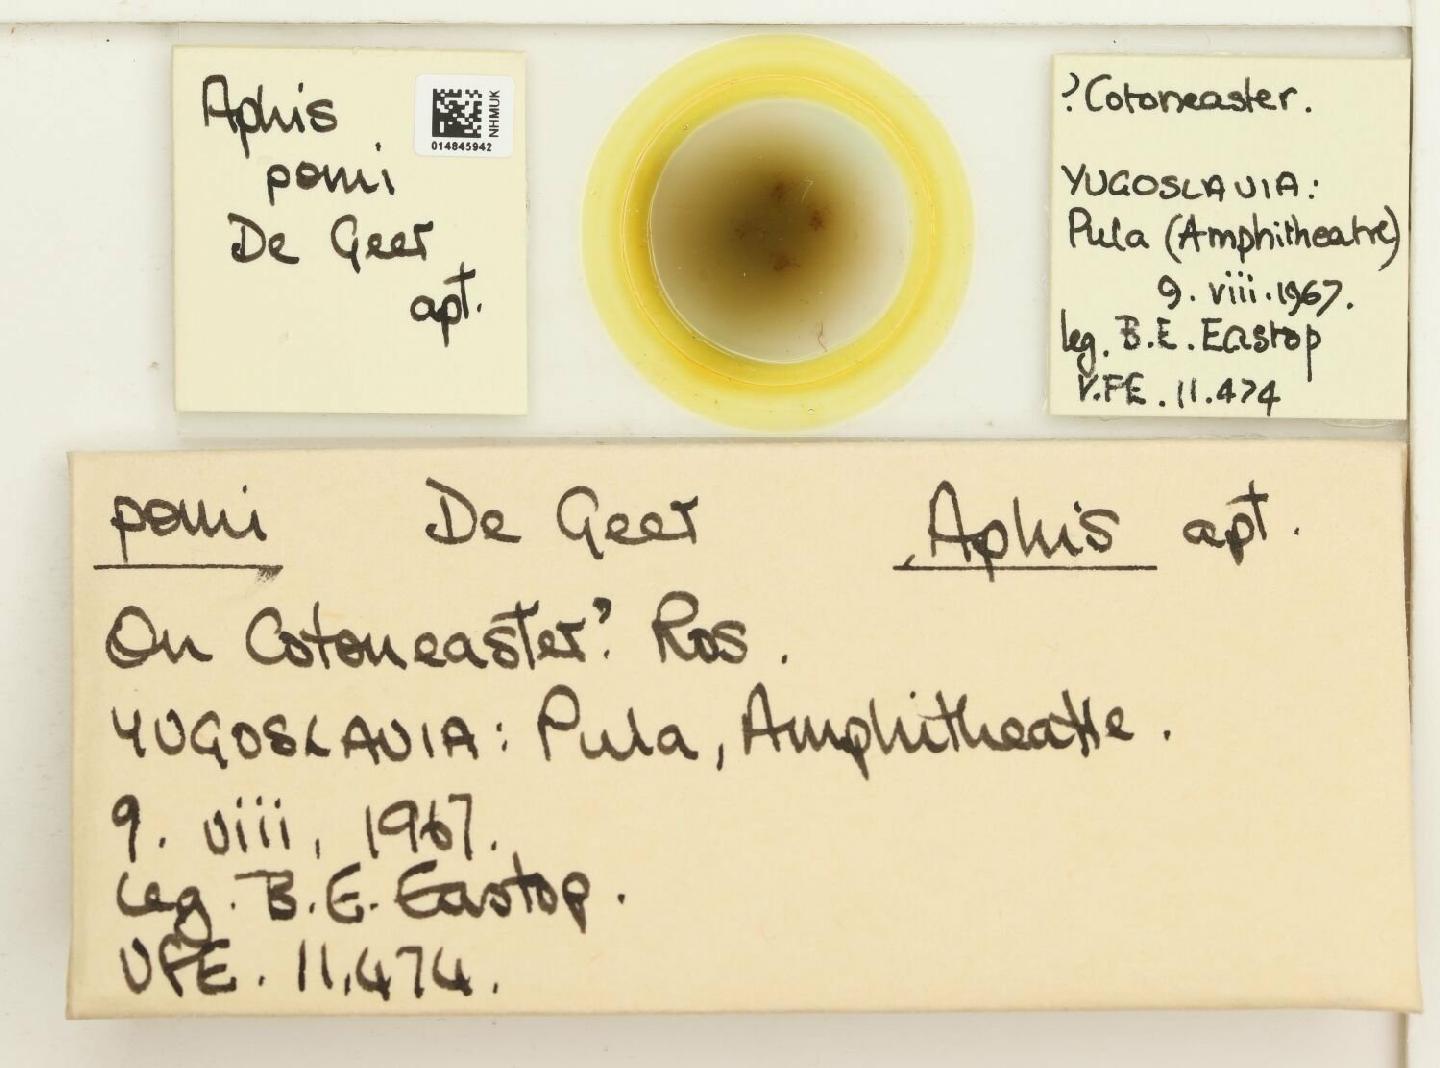 Aphis
pomi
De Geer
apt.
NHMUK
014845942
?Cotoneaster.
YUGOSLAVIA:
Pula (Amphitheatre)
9. viii. 1967.
leg. B.E. Eastop
V.F.E. 11.474
pomi De Geer Aphis apt.
On Cotoneaster? Ros.
YUGOSLAVIA: Pula, Amphitheatre.
9. viii, 1967.
Leg. B.E. Eastop.
VFE. 11,474.